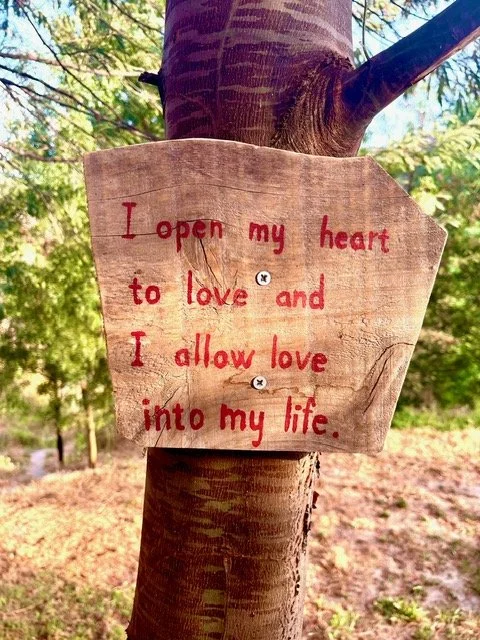 I open my heart
to love and
I allow love
into my life.